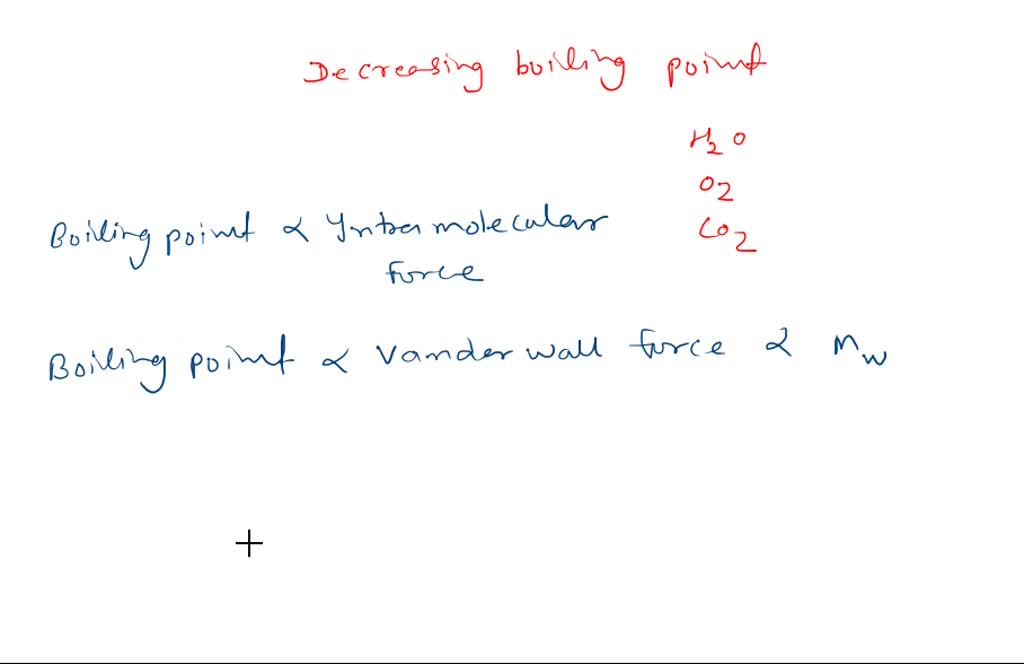 Decreasing boiling point
H2O
O2
CO2
Boiling point ∝ Intramolecular
force
Boiling point ∝ Vanderwall force ∝ Mw